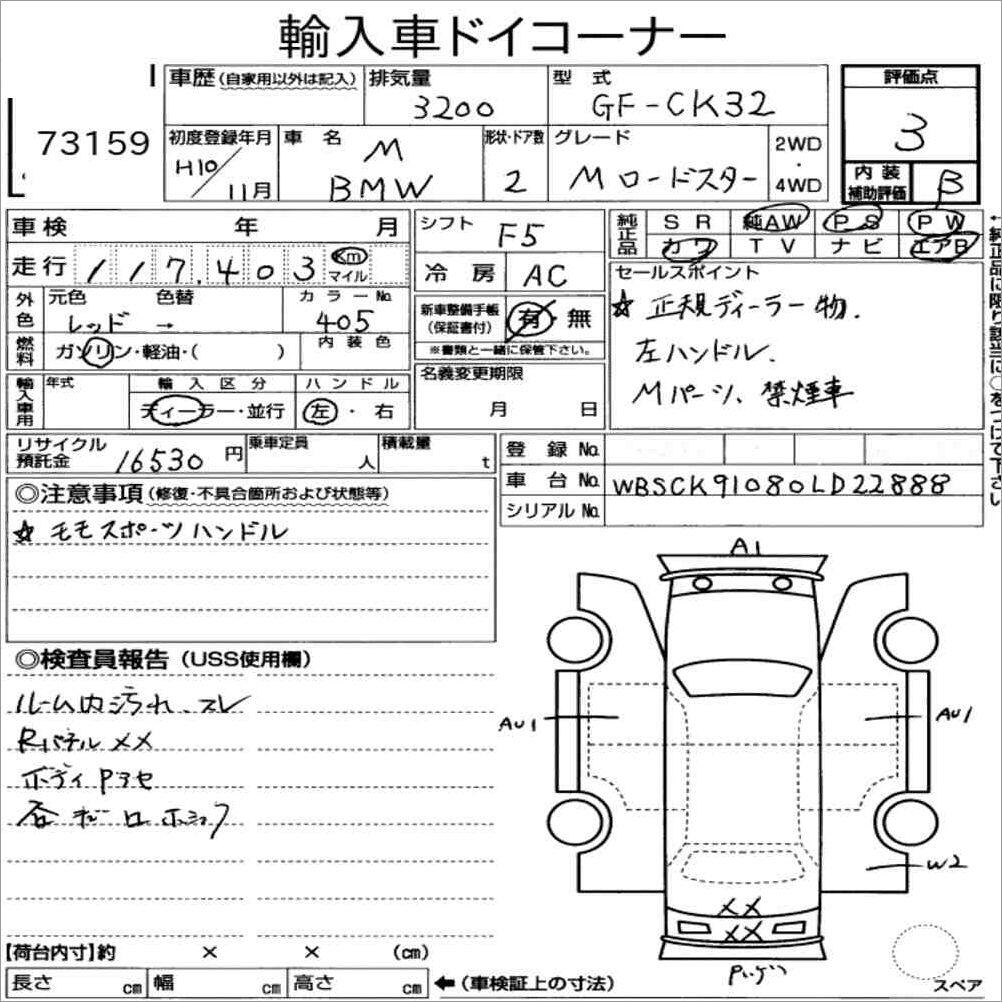 輸入車ドイコーナー
73159
車歴(自家用以外は記入)
排気量
3200
型式
GF-CK32
評価点
3
初度登録年月
H10/11月
車名
M
BMW
形状・ドア数
2
グレード
M ロードスター
2WD
・
4WD
内装
補助評価
B
車検 年 月
シフト
F5
純正品
SR 純AW PS PW
カワ TV ナビ エアB
走行
117,403
km
マイル
冷房
AC
セールスポイント
☆ 正規ディーラー物.
左ハンドル.
Mパーツ、禁煙車
外色
元色 色替
レッド →
カラーNo.
405
新車整備手帳
(保証書付)
有・無
※書類と一緒に保管下さい。
燃料
ガソリン・軽油・( )
内装色
輸入車用
年式
輸入区分
ディーラー・並行
ハンドル
左・右
名義変更期限
月 日
←純正品に限り該当に○をつけて下さい
リサイクル
預託金
16530 円
乗車定員
人
積載量
t
登録No.
車台No.
WBSCK91080LD22888
シリアルNo.
◎注意事項(修復・不具合箇所および状態等)
☆ モモスポーツハンドル
◎検査員報告(USS使用欄)
ルーム内汚れ、スレ
Rパネル XX
ボディ Pアセ
A1
AU1
AU1
W2
XX
XX
スペア
【荷台内寸】約 × × (cm)
長さ cm 幅 cm 高さ cm
←(車検証上の寸法)